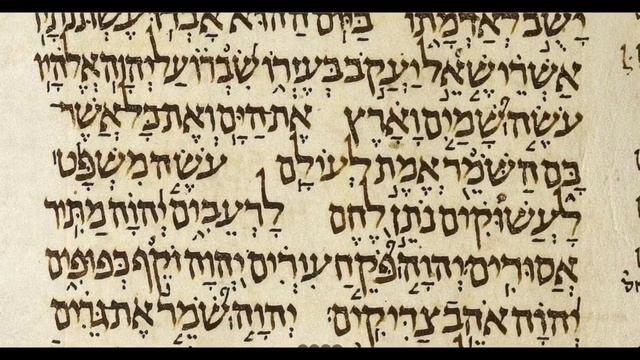 יָשֻׁב לְאַדְמָתוֹ בַּיּוֹם הַהוּא אָבְדוּ עֶשְׁתֹּנֹתָיו
אַשְׁרֵי שֶׁאֵל יַעֲקֹב בְּעֶזְרוֹ שִׂבְרוֹ עַל יְהוָה אֱלֹהָיו
עֹשֶׂה שָׁמַיִם וָאָרֶץ אֶת הַיָּם וְאֶת כָּל אֲשֶׁר
בָּם הַשֹּׁמֵר אֱמֶת לְעוֹלָם עֹשֶׂה מִשְׁפָּט
לָעֲשׁוּקִים נֹתֵן לֶחֶם לָרְעֵבִים יְהוָה מַתִּיר
אֲסוּרִים יְהוָה פֹּקֵחַ עִוְרִים יְהוָה זֹקֵף כְּפוּפִים
יְהוָה אֹהֵב צַדִּיקִים יְהוָה שֹׁמֵר אֶת גֵּרִים